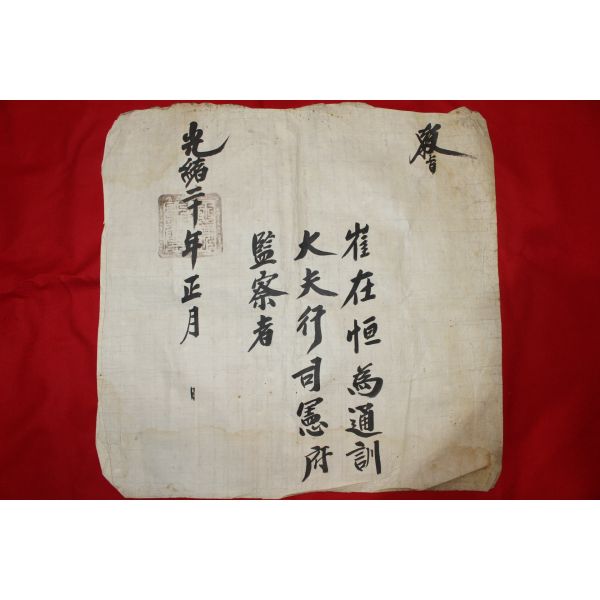 敎旨
崔在恒為通訓
大夫行司憲府
監察者
光緖二十年正月 日